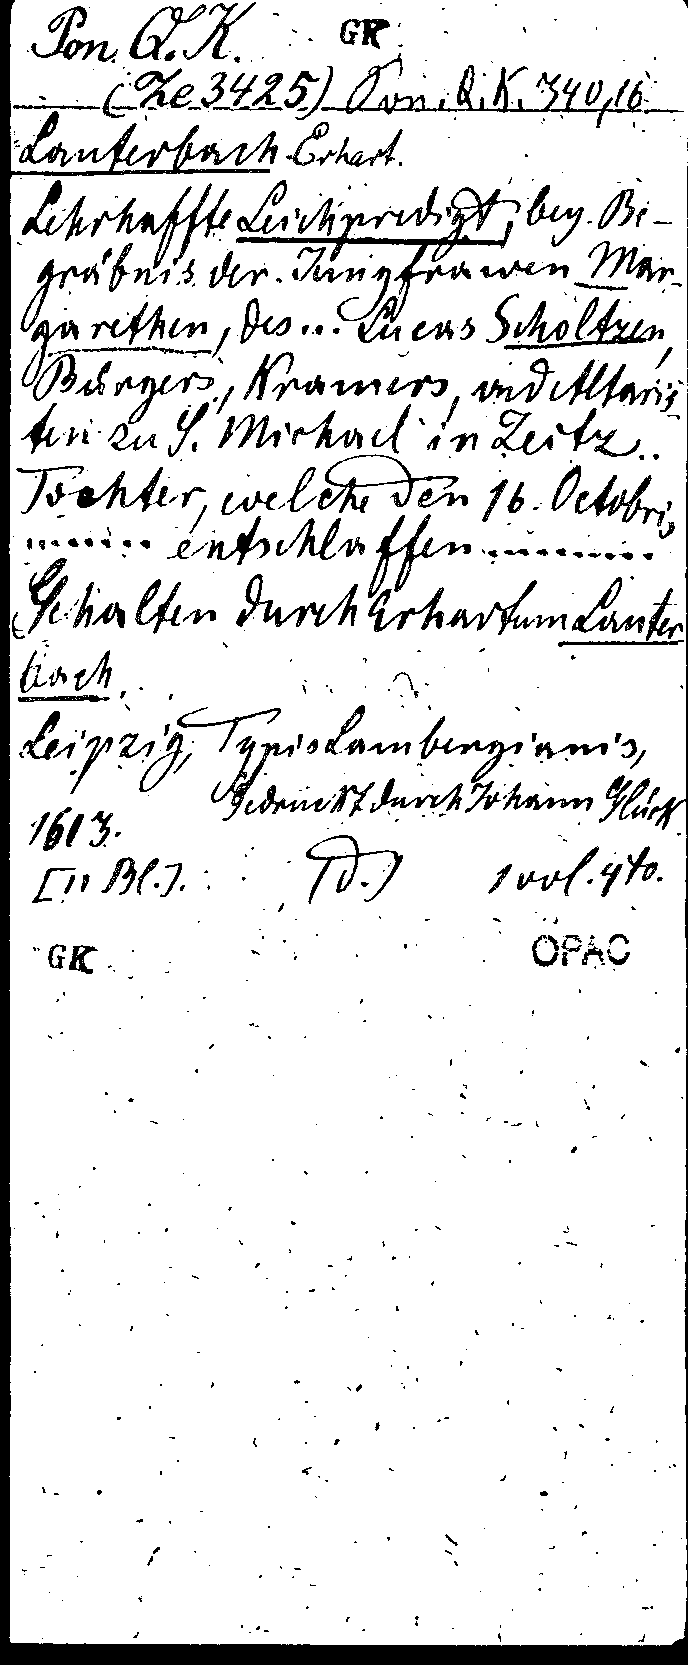 Pon. Q. K. GK
(Ze 3425) Pon. Q. K. 340,16
Lauterbach Erhart.
Lehrhaffte Leichpredigt, bey Be-
gräbnis der Jungfrawen Mar-
garethen, des... Lucas Scholtzen,
Bürgers, Kramers, vnd Altaris-
ten zu S. Michael in Zeitz..
Tochter, welche den 16. Octobris
...... entschlaffen ........
Gehalten durch Erhartum Lauter
bach.
Leipzig, Typis Lambergianis,
Gedruckt durch Johann Glück
1613.
[11 Bl.]. (d.) 1 vol. 4to.
GK OPAC